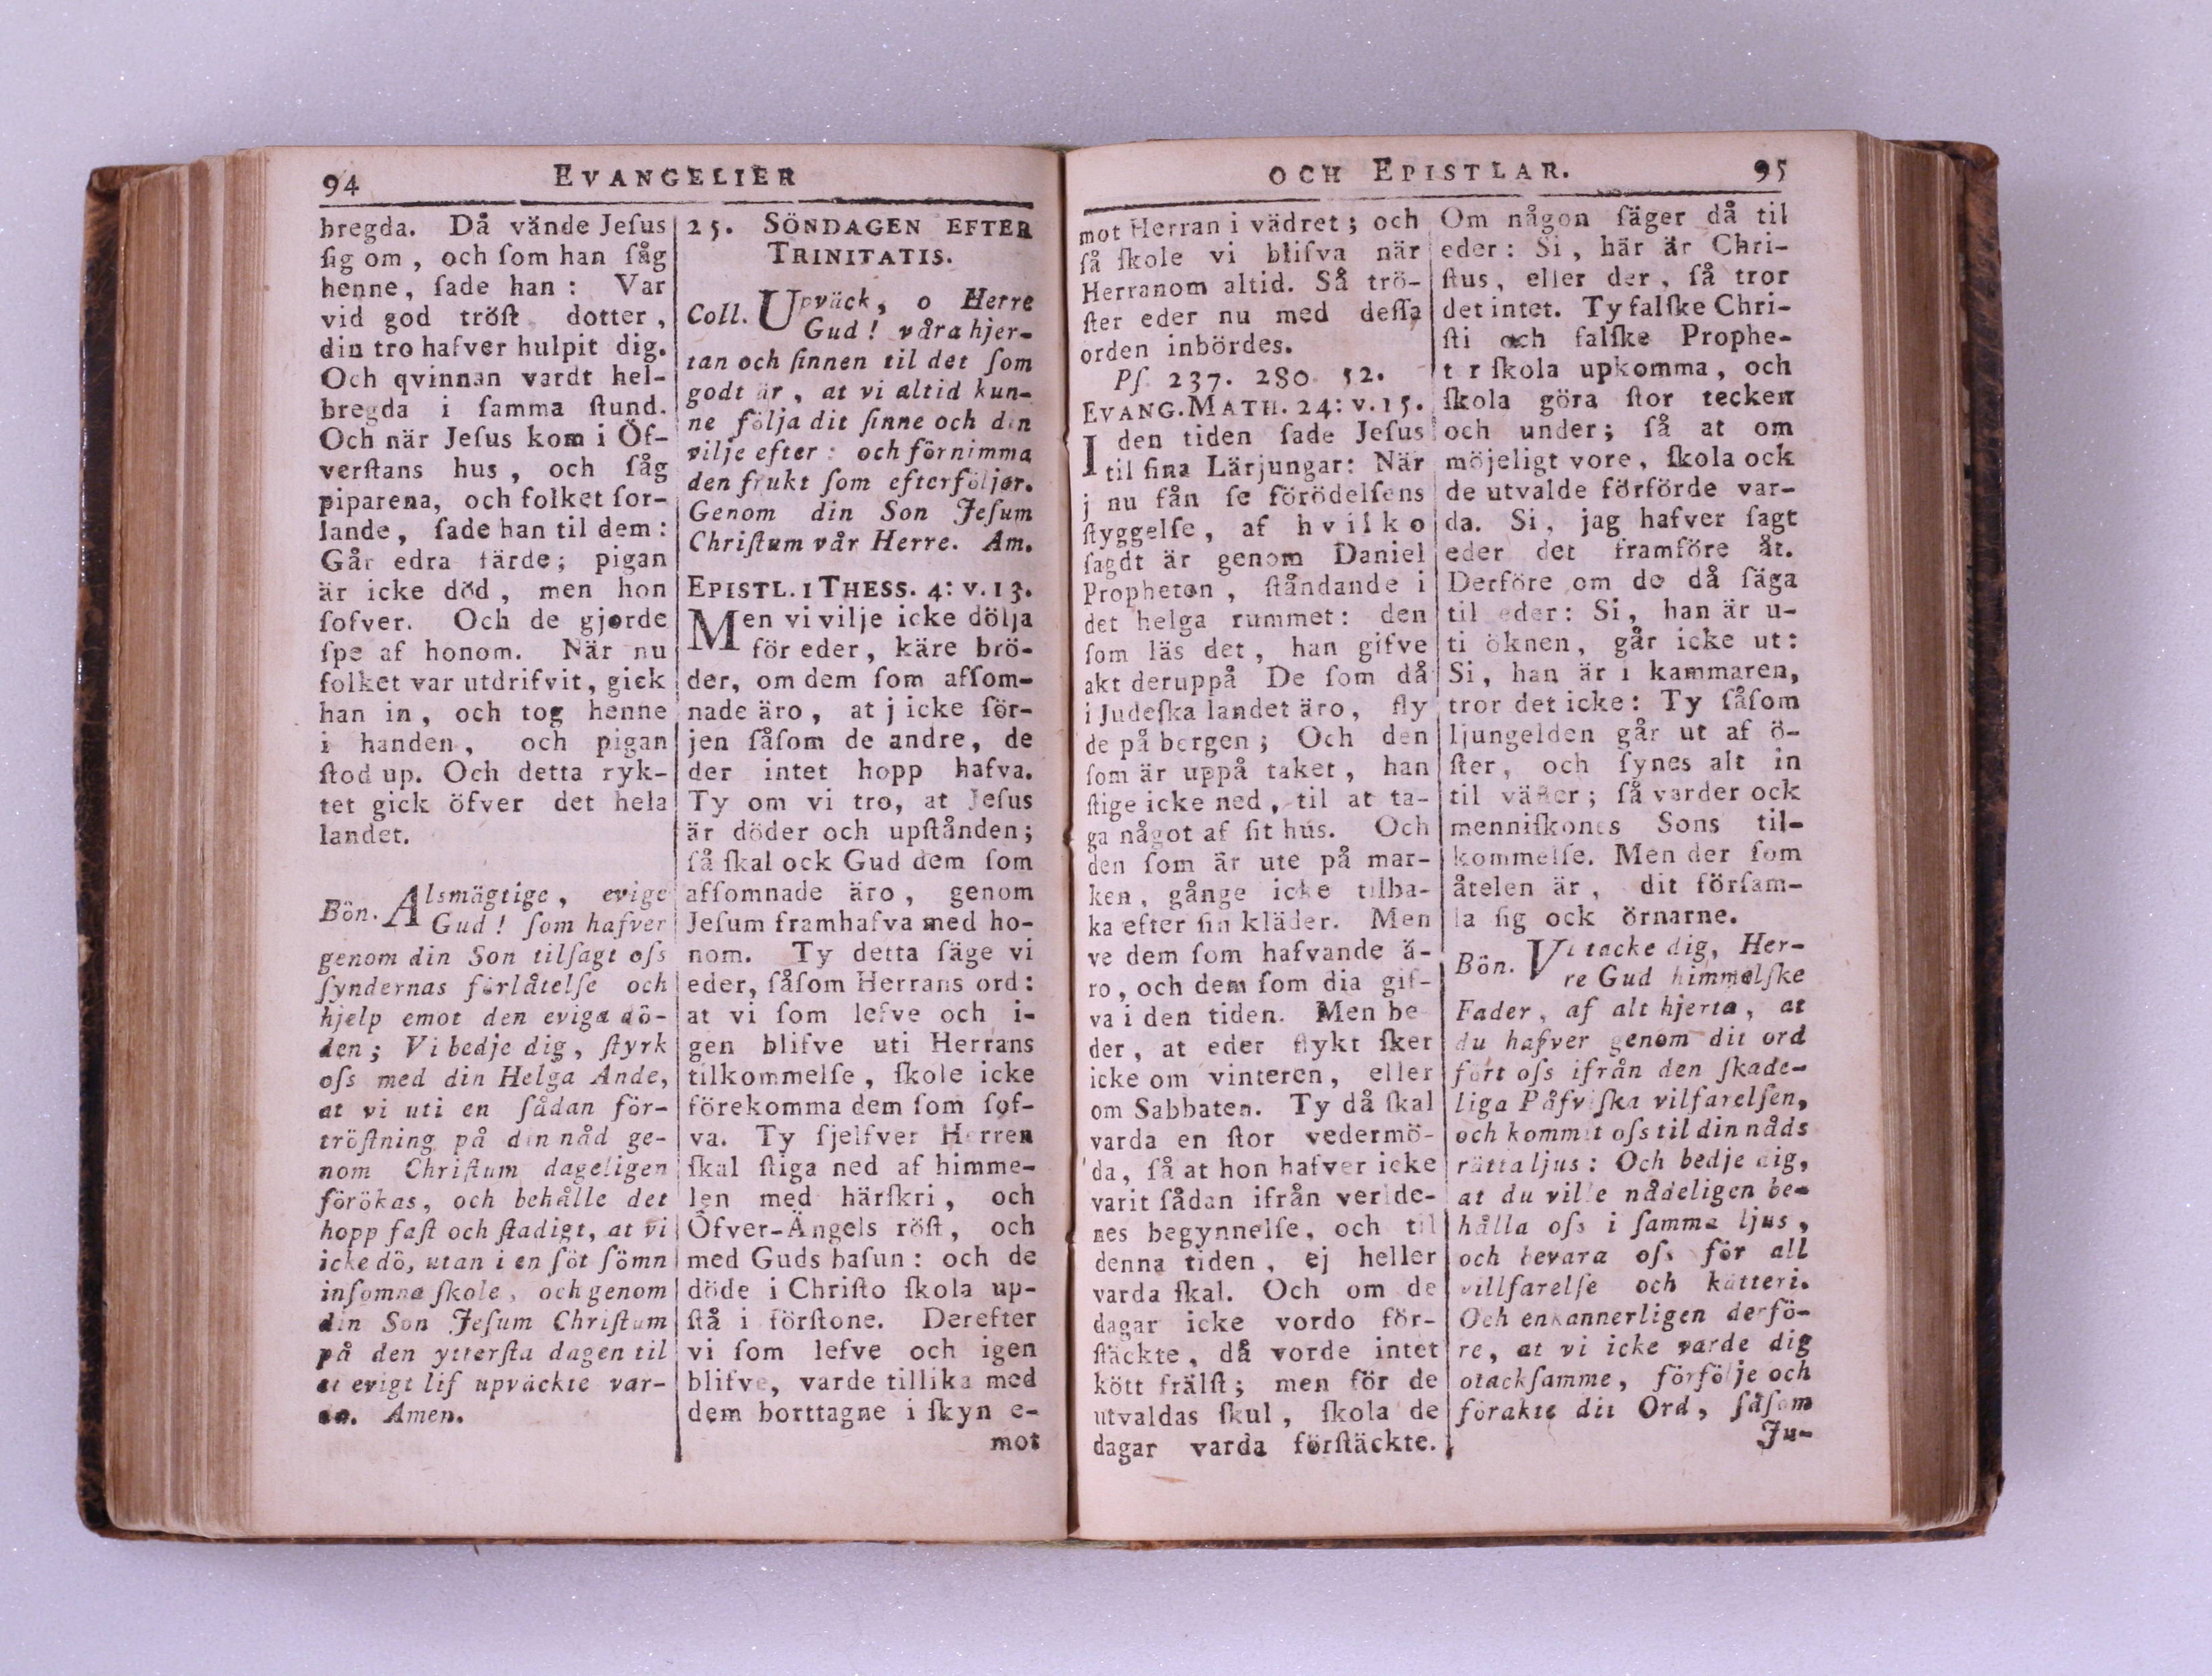 94 EVANGELIER
bregda. Då vände Jeſus
ſig om, och ſom han ſåg
henne, ſade han: Var
vid god tröſt dotter,
din tro hafver hulpit dig.
Och qvinnan vardt hel-
bregda i ſamma ſtund.
Och när Jeſus kom i Öf-
verſtans hus, och ſåg
piparena, och folket ſor-
lande, ſade han til dem:
Går edra färde; pigan
är icke död, men hon
ſofver. Och de gjorde
ſpe af honom. När nu
folket var utdrifvit, gick
han in, och tog henne
i handen, och pigan
ſtod up. Och detta ryk-
tet gick öfver det hela
landet.
Bön. Alsmägtige, evige
Gud! ſom hafver
genom din Son tilſagt oſs
ſyndernas förlåtelſe och
hjelp emot den eviga dö-
den; Vi bedje dig, ſtyrk
oſs med din Helga Ande,
at vi uti en ſådan för-
tröſtning på din nåd ge-
nom Chriſtum dageligen
förökas, och behålle det
hopp faſt och ſtadigt, at vi
icke dö, utan i en ſöt ſömn
inſomna ſkole, och genom
din Son Jeſum Chriſtum
på den ytterſta dagen til
et evigt lif upväckte var-
da. Amen.
25. SÖNDAGEN EFTER
TRINITATIS.
Coll. Upväck, o Herre
Gud! våra hjer-
tan och ſinnen til det ſom
godt är, at vi altid kun-
ne följa dit ſinne och din
vilje efter: och förnimma
den frukt ſom efterföljer.
Genom din Son Jeſum
Chriſtum vår Herre. Am.
EPISTL. 1 THESS. 4: v. 13.
Men vi vilje icke dölja
för eder, käre brö-
der, om dem ſom afſom-
nade äro, at j icke ſör-
jen ſåſom de andre, de
der intet hopp hafva.
Ty om vi tro, at Jeſus
är döder och upſtånden;
ſå ſkal ock Gud dem ſom
afſomnade äro, genom
Jeſum framhafva med ho-
nom. Ty detta ſäge vi
eder, ſåſom Herrans ord:
at vi ſom lefve och i-
gen blifve uti Herrans
tilkommelſe, ſkole icke
förekomma dem ſom ſof-
va. Ty ſjelfver Herren
ſkal ſtiga ned af himme-
len med härſkri, och
Öfver-Ängels röſt, och
med Guds baſun: och de
döde i Chriſto ſkola up-
ſtå i förſtone. Derefter
vi ſom lefve och igen
blifve, varde tillika med
dem borttagne i ſkyn e-
mot
OCH EPISTLAR. 95
mot Herran i vädret; och
ſå ſkole vi blifva när
Herranom altid. Så trö-
ſter eder nu med deſſa
orden inbördes.
Pſ. 237. 280. 52.
EVANG. MATH. 24: v. 15.
I den tiden ſade Jeſus
til ſina Lärjungar: När
j nu fån ſe förödelſens
ſtyggelſe, af hvilko
ſagdt är genom Daniel
Propheten, ſtåndande i
det helga rummet: den
ſom läs det, han gifve
akt deruppå De ſom då
i Judeſka landet äro, fly
de på bergen; Och den
ſom är uppå taket, han
ſtige icke ned, til at ta-
ga något af ſit hus. Och
den ſom är ute på mar-
ken, gånge icke tilba-
ka efter ſin kläder. Men
ve dem ſom hafvande ä-
ro, och dem ſom dia gif-
va i den tiden. Men be-
der, at eder flykt ſker
icke om vinteren, eller
om Sabbaten. Ty då ſkal
varda en ſtor vedermö-
da, ſå at hon hafver icke
varit ſådan ifrån verlde-
nes begynnelſe, och til
denna tiden, ej heller
varda ſkal. Och om de
dagar icke vordo för-
ſtäckte, då vorde intet
kött frälſt; men för de
utvaldas ſkul, ſkola de
dagar varda förſtäckte.
Om någon ſäger då til
eder: Si, här är Chri-
ſtus, eller der, ſå tror
det intet. Ty falſke Chri-
ſti och falſke Prophe-
ter ſkola upkomma, och
ſkola göra ſtor tecken
och under; ſå at om
möjeligt vore, ſkola ock
de utvalde förförde var-
da. Si, jag hafver ſagt
eder det framföre åt.
Derföre om de då ſäga
til eder: Si, han är u-
ti öknen, går icke ut:
Si, han är i kammaren,
tror det icke: Ty ſåſom
ljungelden går ut af ö-
ſter, och ſynes alt in
til väſter; ſå varder ock
menniſkones Sons til-
kommelſe. Men der ſom
åtelen är, dit förſam-
la ſig ock örnarne.
Bön. Vi tacke dig, Her-
re Gud himmelſke
Fader, af alt hjerta, at
du hafver genom dit ord
fört oſs ifrån den ſkade-
liga Påfviſka vilfarelſen,
och kommit oſs til din nåds
rätta ljus: Och bedje dig,
at du ville nådeligen be-
hålla oſs i ſamma ljus,
och bevara oſs för all
villfarelſe och kätteri.
Och enkannerligen derfö-
re, at vi icke varde dig
otackſamme, förfölje och
förakte dit Ord, ſåſom
Ju-